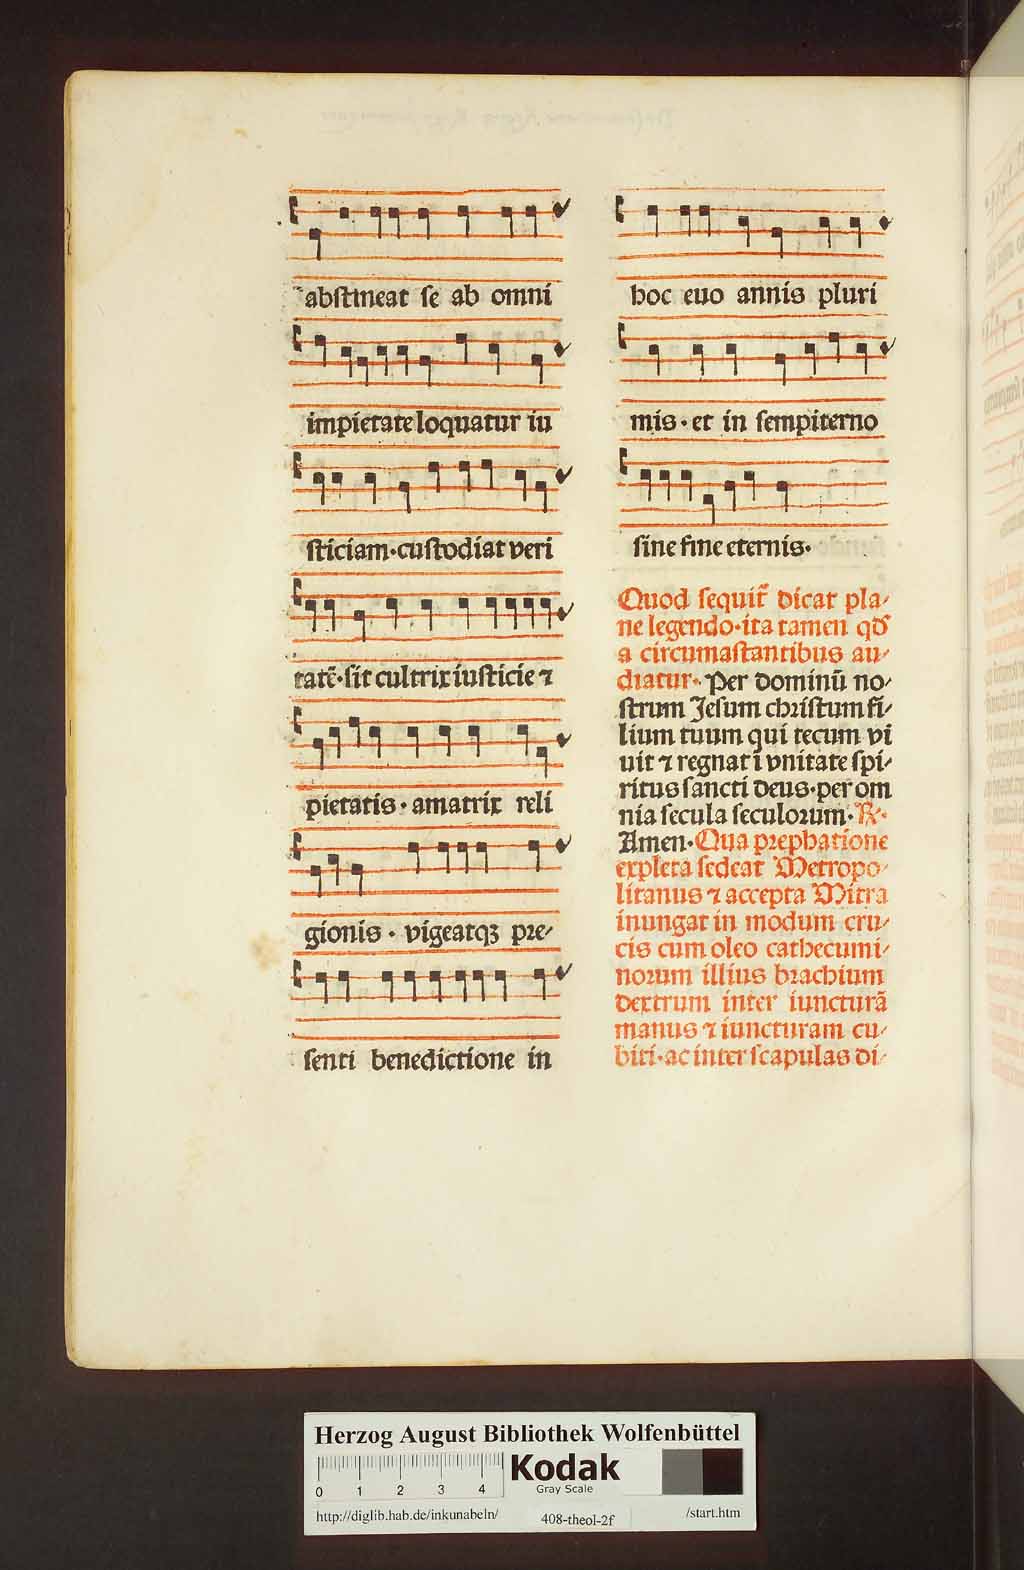 abstineat se ab omni
impietate loquatur iu
sticiam·custodiat veri
tatē·sit cultrix iusticie ⁊
pietatis·amatrix reli
gionis·vigeatqꝫ pre-
senti benedictione in
hoc euo annis pluri
mis·et in sempiterno
sine fine eternis.
Quod sequit᷑ dicat pla-
ne legendo·ita tamen qđ
a circumastantibus au-
diatur. Per dominū no-
strum Jesum christum fi-
lium tuum qui tecum vi
uit ⁊ regnat ī vnitate spi-
ritus sancti deus·per om
nia secula seculorum. ℟.
Amen. Qua prephatione
expleta sedeat Metropo-
litanus ⁊ accepta Mitra
inungat in modum cru-
cis cum oleo cathecumi-
norum illius brachium
dextrum inter iuncturā
manus ⁊ iuncturam cu-
biti·ac inter scapulas di-
Herzog August Bibliothek Wolfenbüttel
0 1 2 3 4
Kodak
Gray Scale
http://diglib.hab.de/inkunabeln/ 408-theol-2f /start.htm